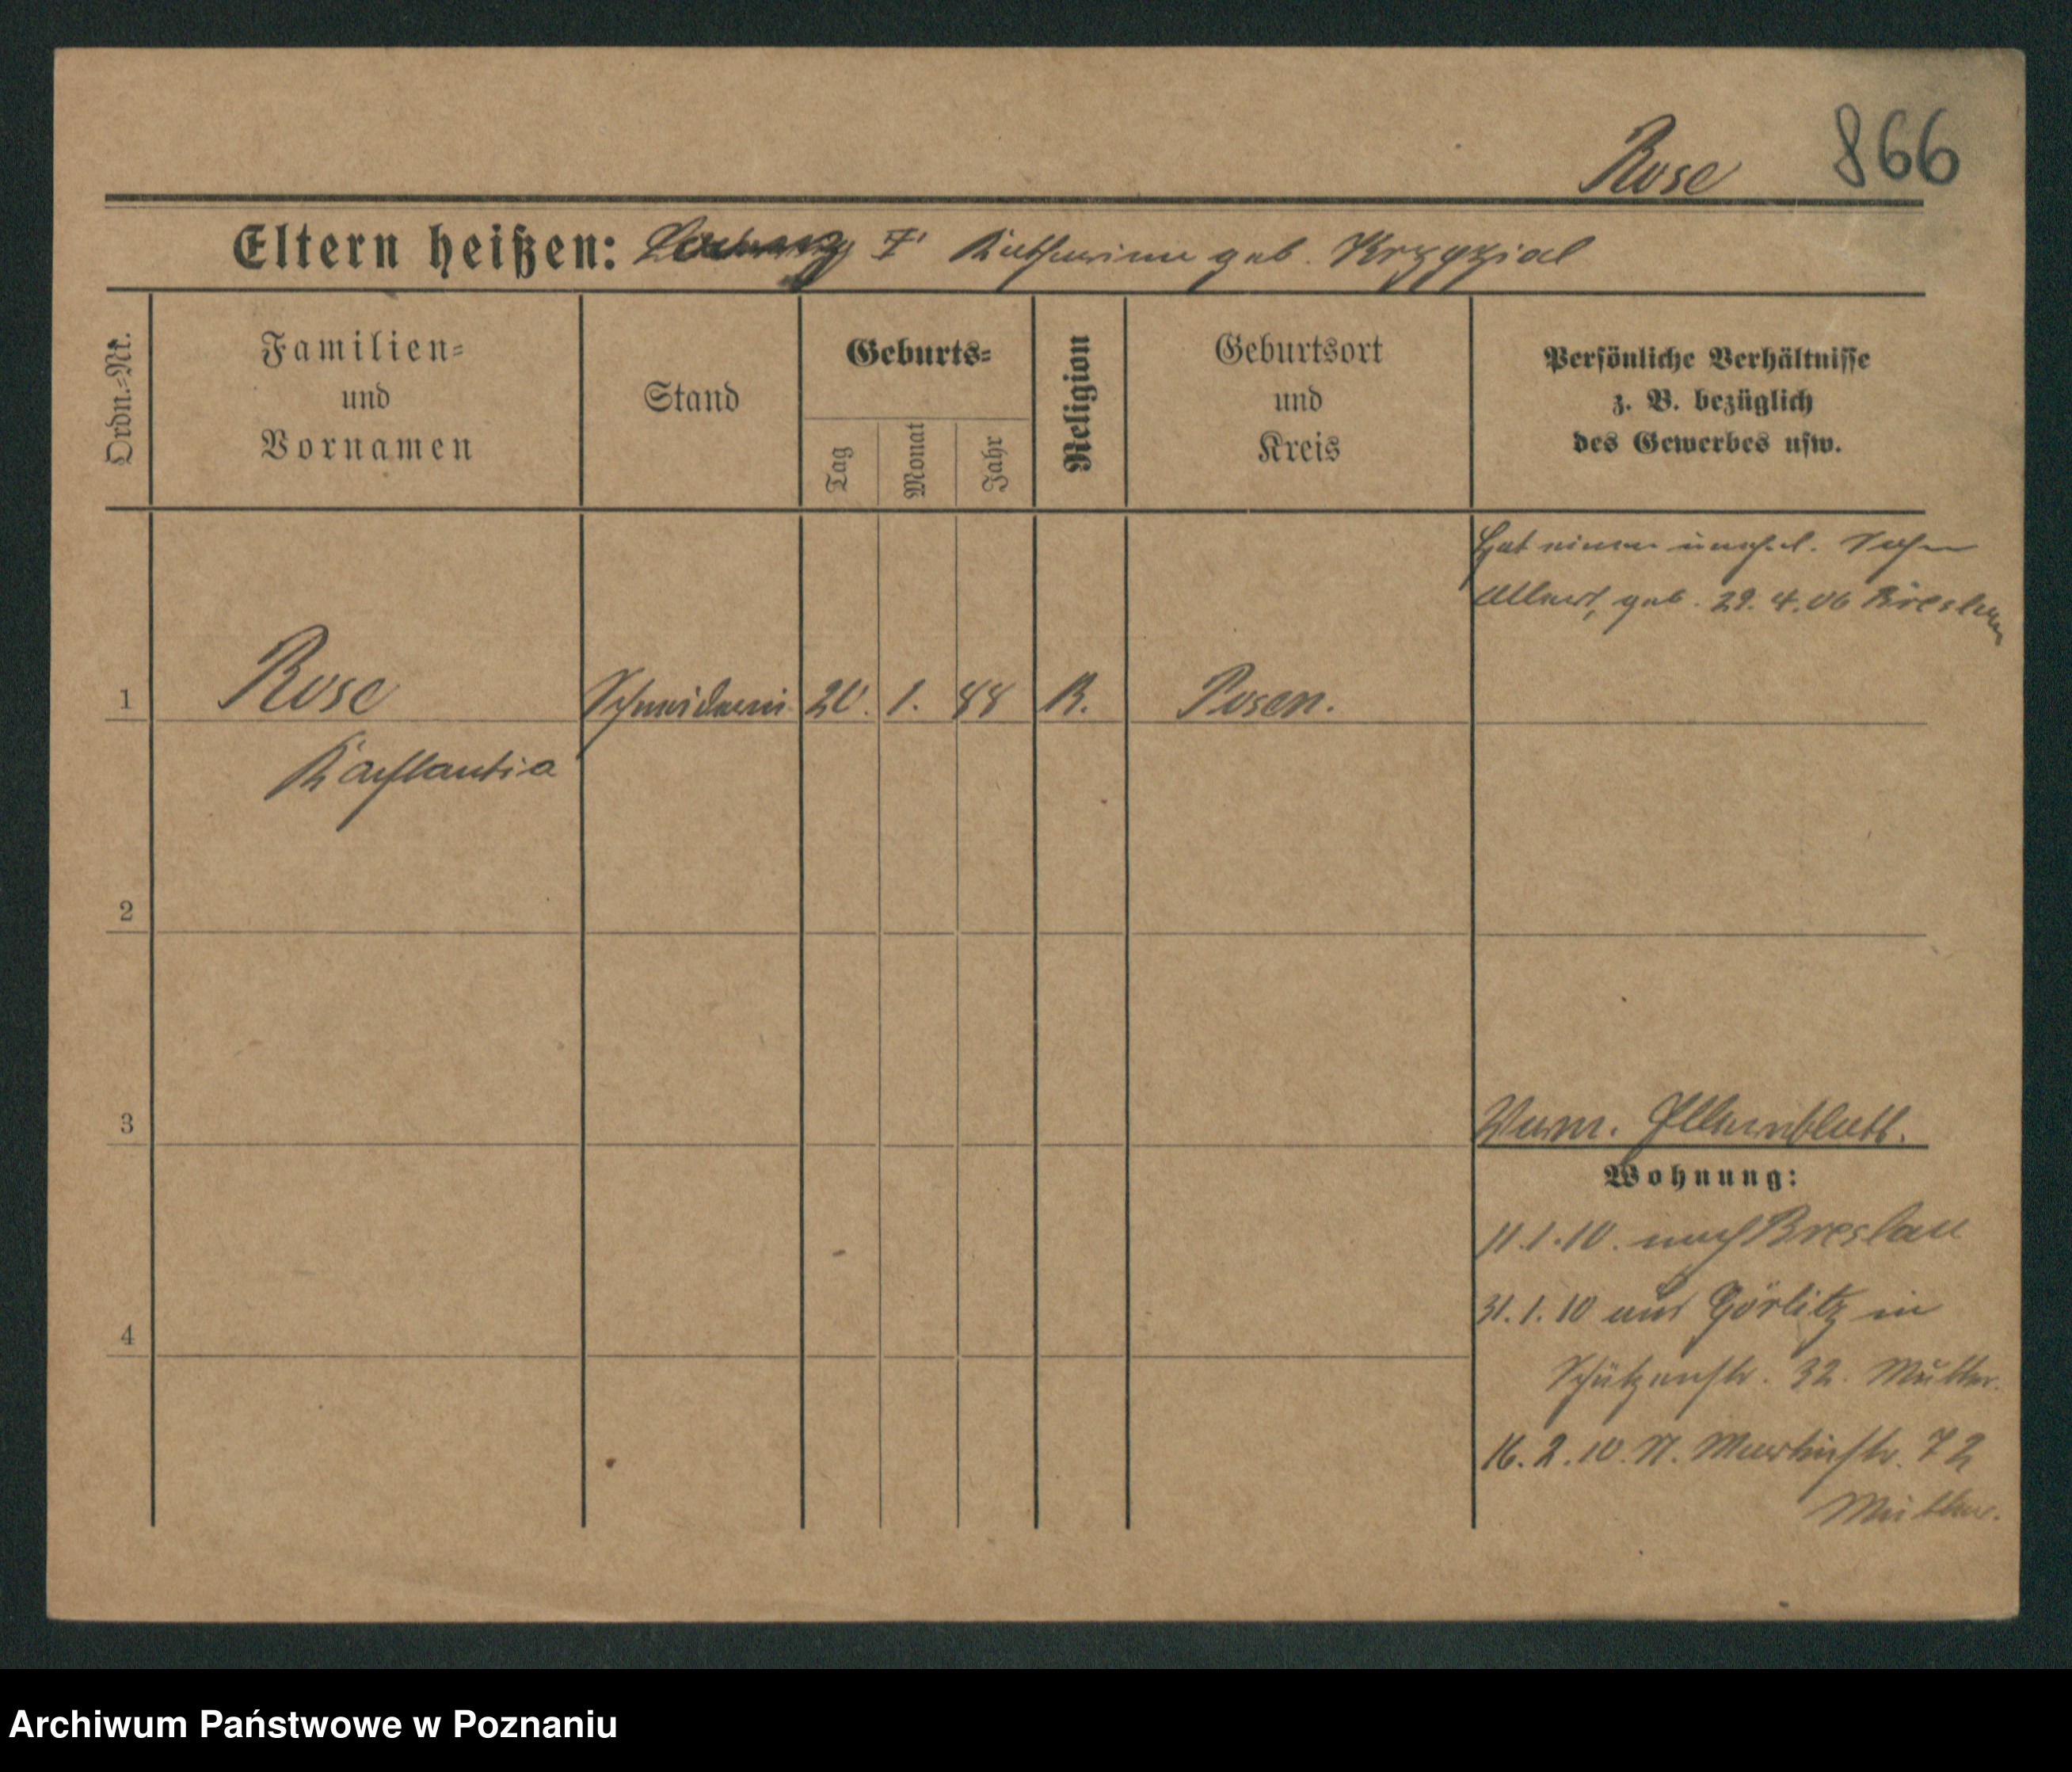 Rose 866
Eltern heißen: Katharina geb.
Ordn.-Nr.
Familien=
und
Vornamen
Stand
Geburts=
Tag
Monat
Jahr
Religion
Geburtsort
und
Kreis
Persönliche Verhältnisse
z. B. bezüglich
des Gewerbes usw.
Hat einen unehel. Sohn
Albert, geb. 29.4.06 Breslau
1 Rose Schneiderin 20. 1. 88 K. Posen.
2
3
Verm. Elternblatt.
Wohnung:
11.1.10. nach Breslau
31.1.10 aus Görlitz in
Schützenstr. 32. Mutter.
4
16.2.10. St. Martinstr. 72
Mutter.
Archiwum Państwowe w Poznaniu